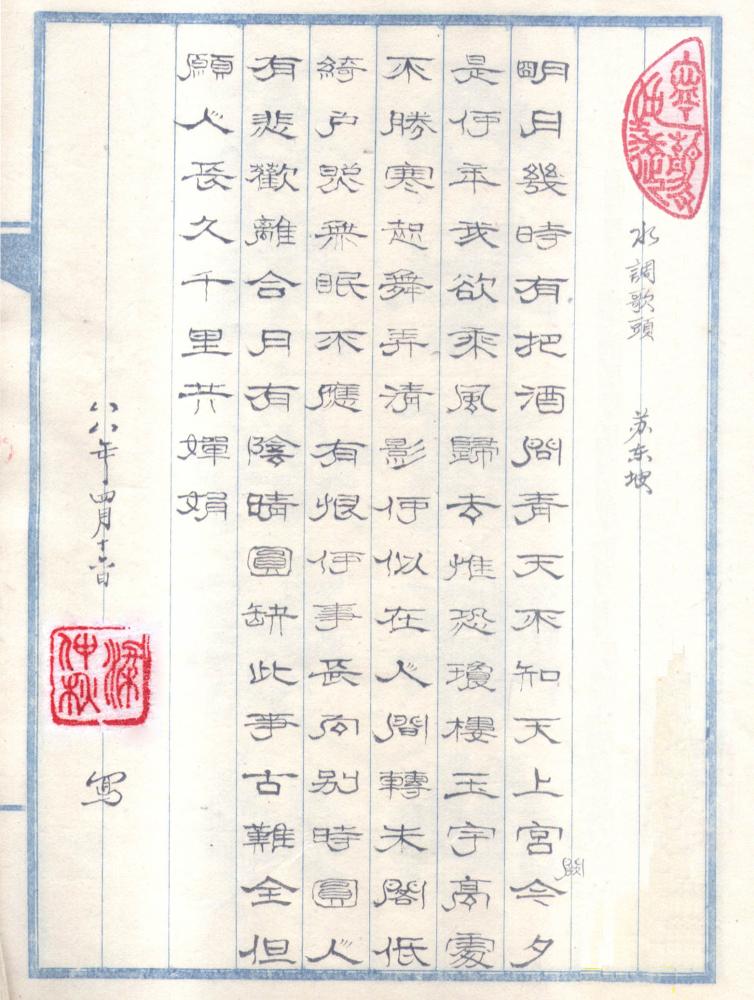 水調歌頭 苏东坡
明月幾時有把酒問青天不知天上宮闕今夕
是何年我欲乘風歸去惟恐瓊樓玉宇高處
不勝寒起舞弄清影何似在人間轉朱閣低
綺户照無眠不應有恨何事長向別時圓人
有悲歡離合月有陰晴圓缺此事古難全但
願人長久千里共嬋娟
八八年四月十六日
梁仲秋
寫